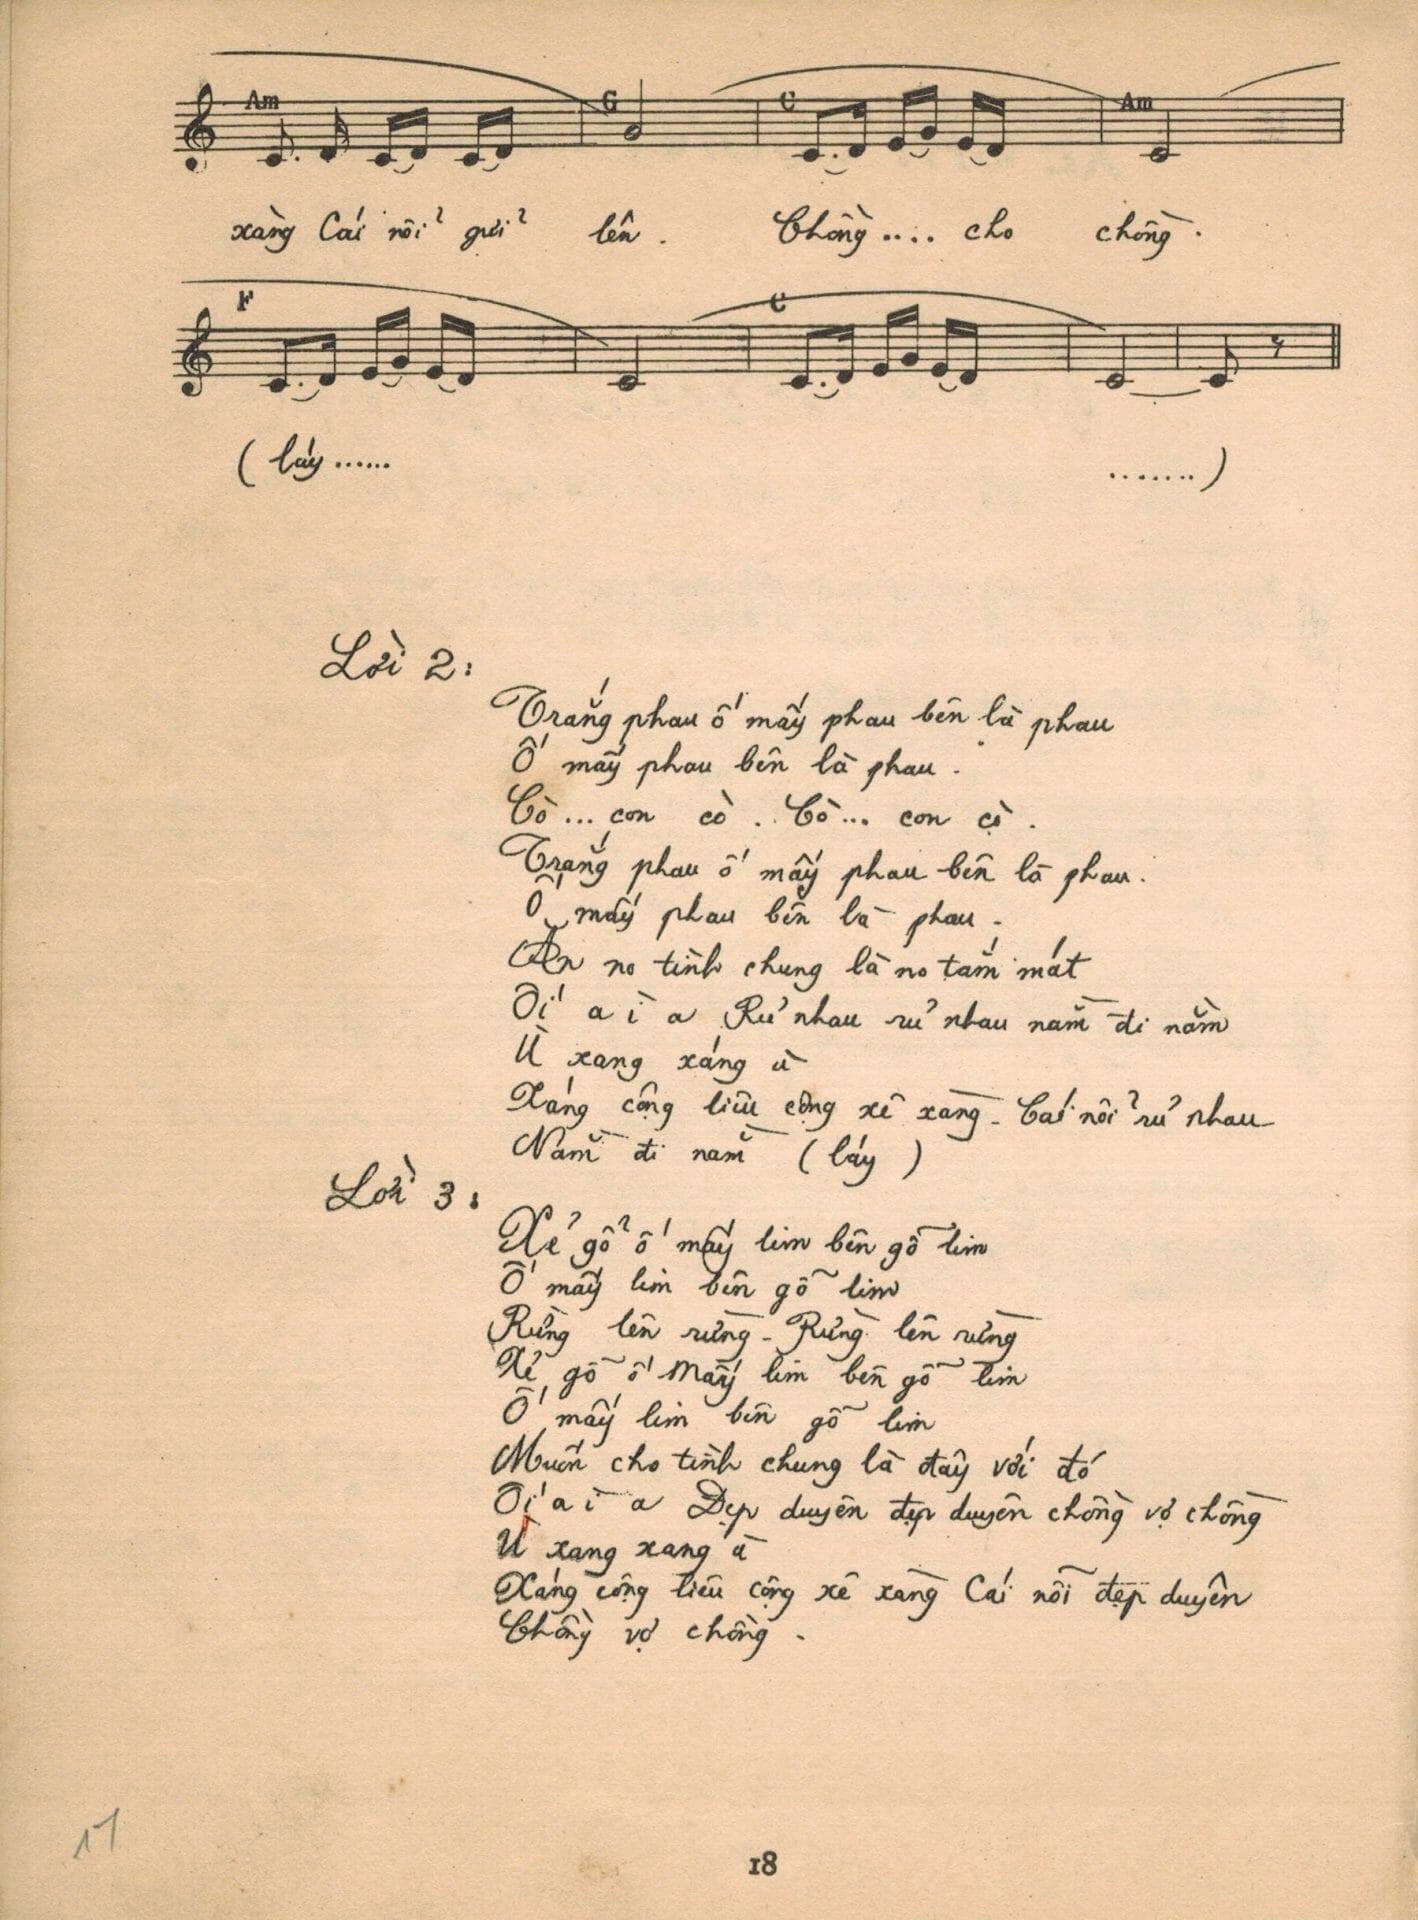 Am G C Am
xàng Cái nôỉ gưỉ lên . Chồng .... cho chồng .
F C
( láy ...... ....... )
Lời 2 :
Trắng phau ố mấy phau bên là phau
Ố mấy phau bên là phau .
Cò ... con cò . Cò ... con cò .
Trắng phau ố mấy phau bên là phau .
Ố mấy phau bên là phau .
Ăn no tình chung là no tắm mát
Ối a ì a Rủ nhau rủ nhau nằm đi nằm
Ù xang xáng ù
Xáng cộng liêu cộng xê xàng . Cái nôỉ rủ nhau
Nằm đi nằm ( láy )
Lời 3 :
Xẻ gỗ ố mấy lim bên gỗ lim
Ố mấy lim bên gỗ lim
Rừng lên rừng . Rừng lên rừng
Xẻ gỗ ố Mấy lim bên gỗ lim
Ố mấy lim bên gỗ lim
Muốn cho tình chung là đây với đó
Ối a ì a Đẹp duyên đẹp duyên chồng vợ chồng
Ù xang xang ù
Xáng cộng liêu cộng xê xàng Cái nôỉ đẹp duyên
Chồng vợ chồng .
17
18